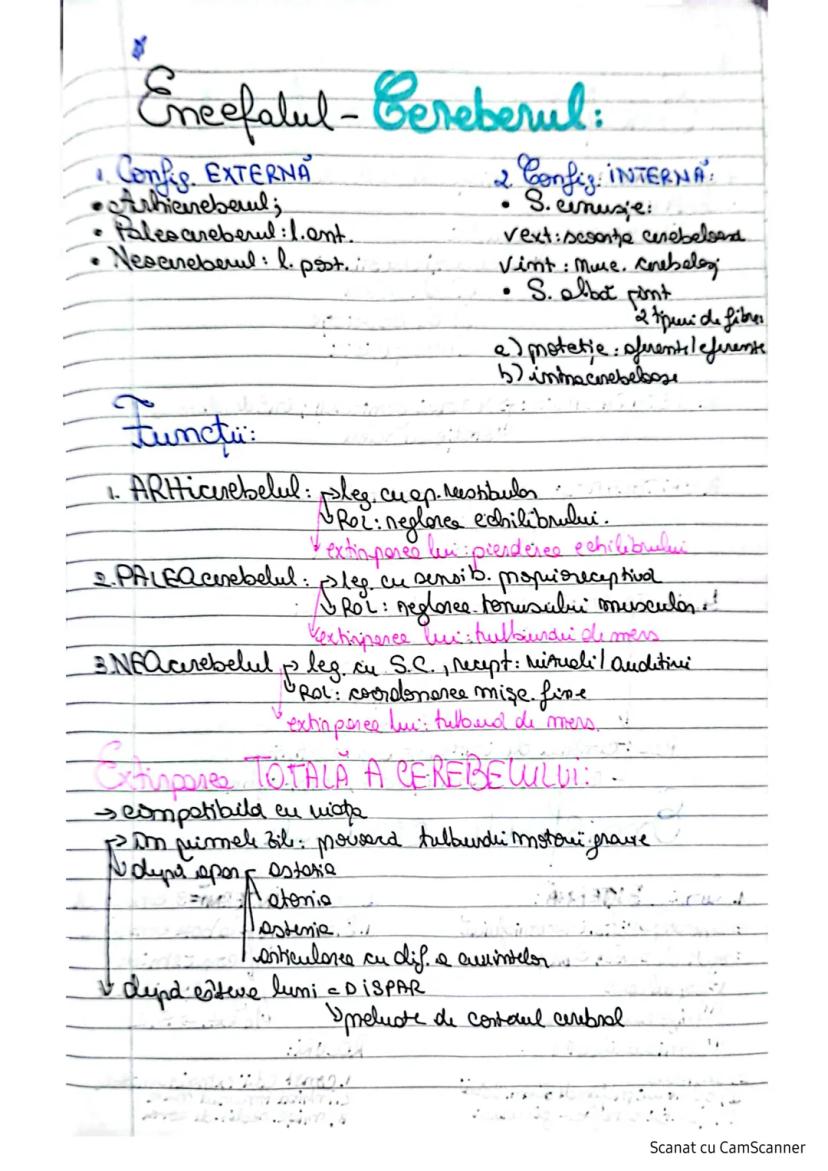 Encefalul - Cerebelul:
1. Config. EXTERNĂ
• Arhicerebelul;
• Paleocerebelul: l. ant.
• Neocerebelul: l. post.
2. Config. INTERNĂ:
• S. cenușie:
√ ext: scoarța cerebeloasă
√ int: nuc. cerebeloși
• S. albă
2 tipuri de fibre
a) proiecție: aferente/eferente
b) intracerebeloase
Funcții:
1. ARHicerebelul: →leg. cu ap. vestibular
Rol: reglarea echilibrului.
extirparea lui: pierderea echilibrului
2. PALEOcerebelul: →leg. cu sensib. proprioceptivă
Rol: reglarea tonusului muscular.
extirparea lui: tulburări de mers
3. NEOcerebelul →leg. cu S.C., recept: vizuali/auditivi
Rol: coordonarea mișc. fine
extirparea lui: tulburări de mers.
Extirparea TOTALĂ A CEREBELULUI:
→ compatibilă cu viața
→În primele zile: provoacă tulburări motorii grave
după apar astazia
atonia
astenia
articularea cu dif. a cuvintelor
după câteva luni = DISPAR
preluate de cortexul cerebral
Scanat cu CamScanner